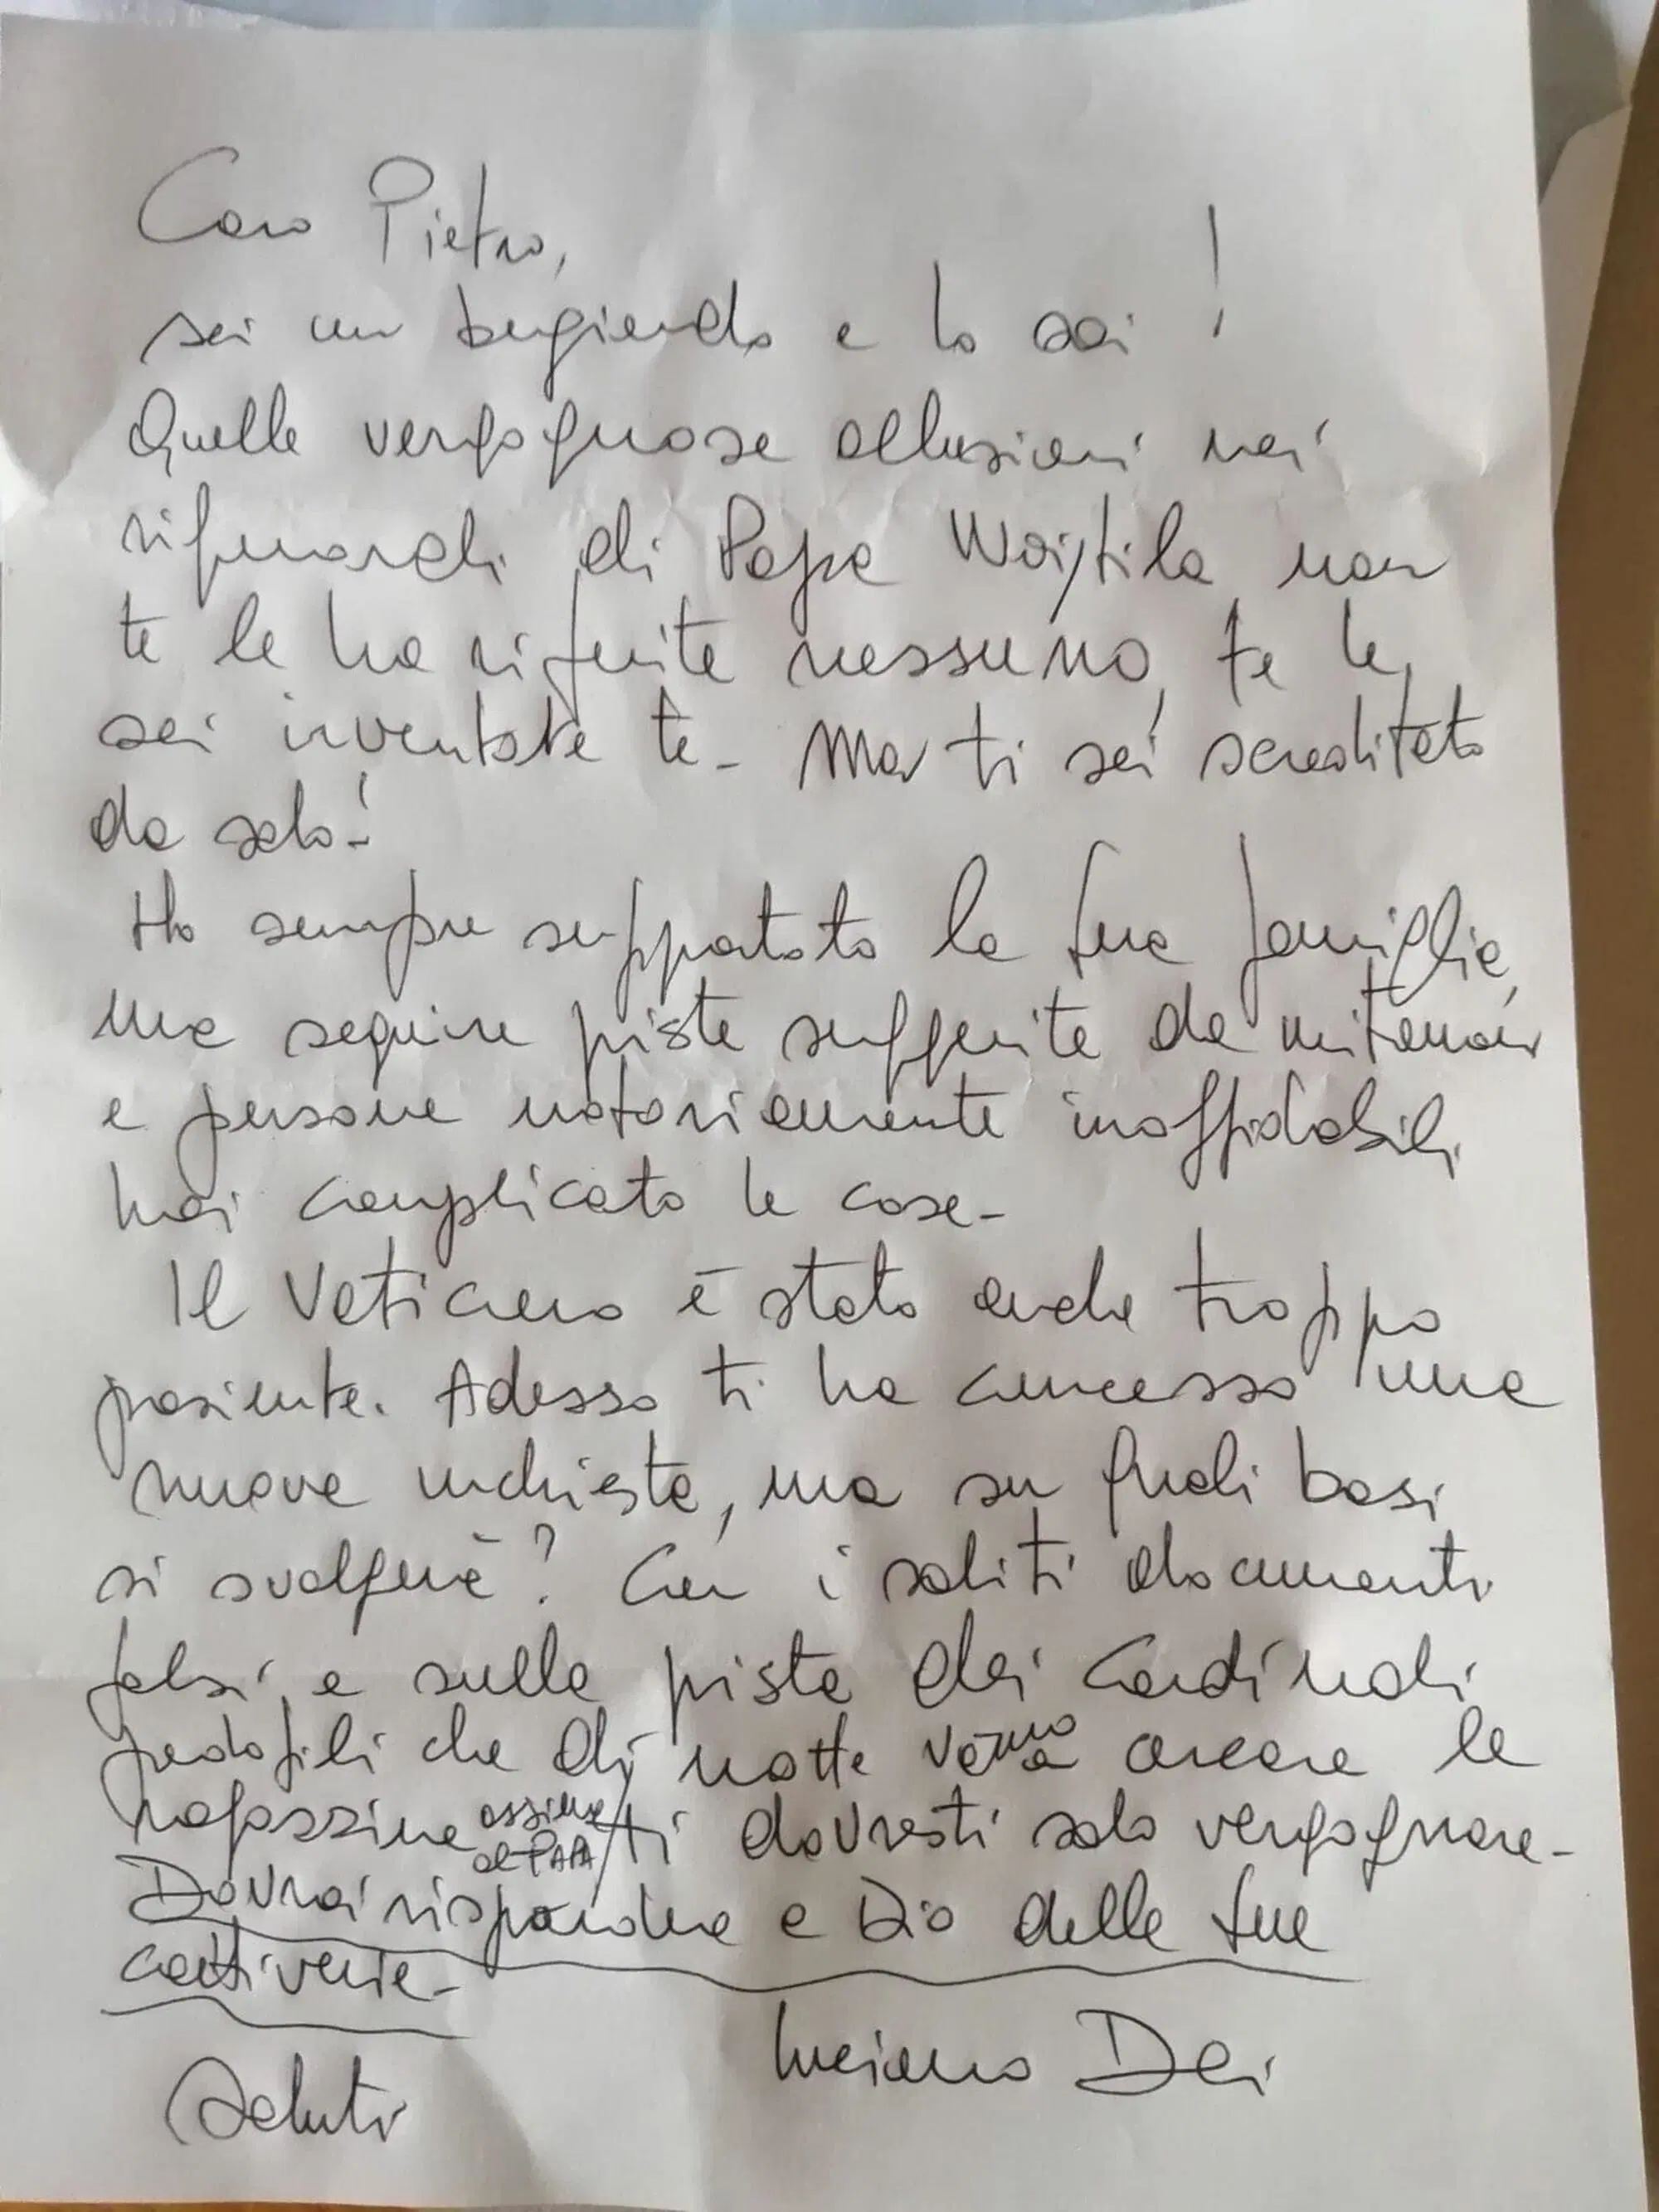 Caro Pietro,
sei un bugiardo e lo sai!
Quelle vergognose allusioni nei
riguardi di Papa Woijtila non
te le ha riferite nessuno, te le
sei inventate te - Ma ti sei screditato
da solo!
Ho sempre supportato la tua famiglia,
ma seguire piste suggerite da mitomani
e persone notoriamente inaffidabili
hai complicato le cose -
Il Vaticano è stato anche troppo
paziente. Adesso ti ha concesso una
nuova inchiesta, ma su quali basi
si svolgerà? Con i soliti documenti
falsi, e sulla pista dei Cardinali
pedofili che di notte vanno a cercare le
ragazzine assieme al PAPA / ti dovresti solo vergognare -
Dovrai rispondere a Dio delle tue
cattiverie -
Luciano Dei
Saluti